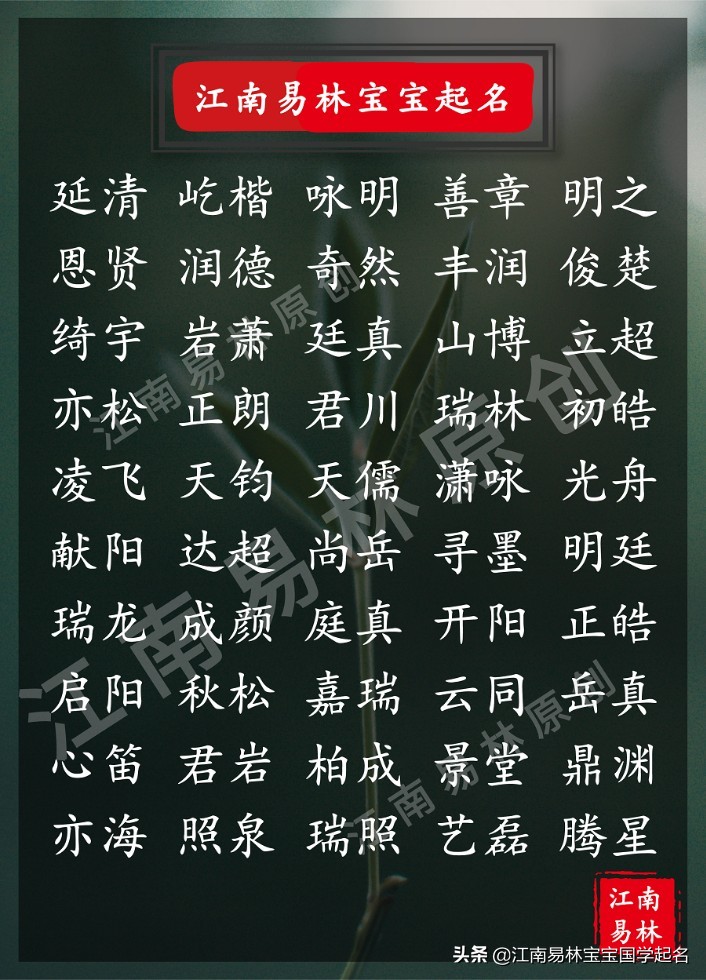 江南易林宝宝起名
延清 屹楷 咏明 善章 明之
恩贤 润德 奇然 丰润 俊楚
绮宇 岩萧 廷真 山博 立超
亦松 正朗 君川 瑞林 初皓
凌飞 天钧 天儒 潇咏 光舟
献阳 达超 尚岳 寻墨 明廷
瑞龙 成颜 庭真 开阳 正皓
启阳 秋松 嘉瑞 云同 岳真
心笛 君岩 柏成 景堂 鼎渊
亦海 照泉 瑞照 艺磊 腾星
江南易林原创
江南易林原创
江南易林原创
江南
易林
头条 @江南易林宝宝国学起名